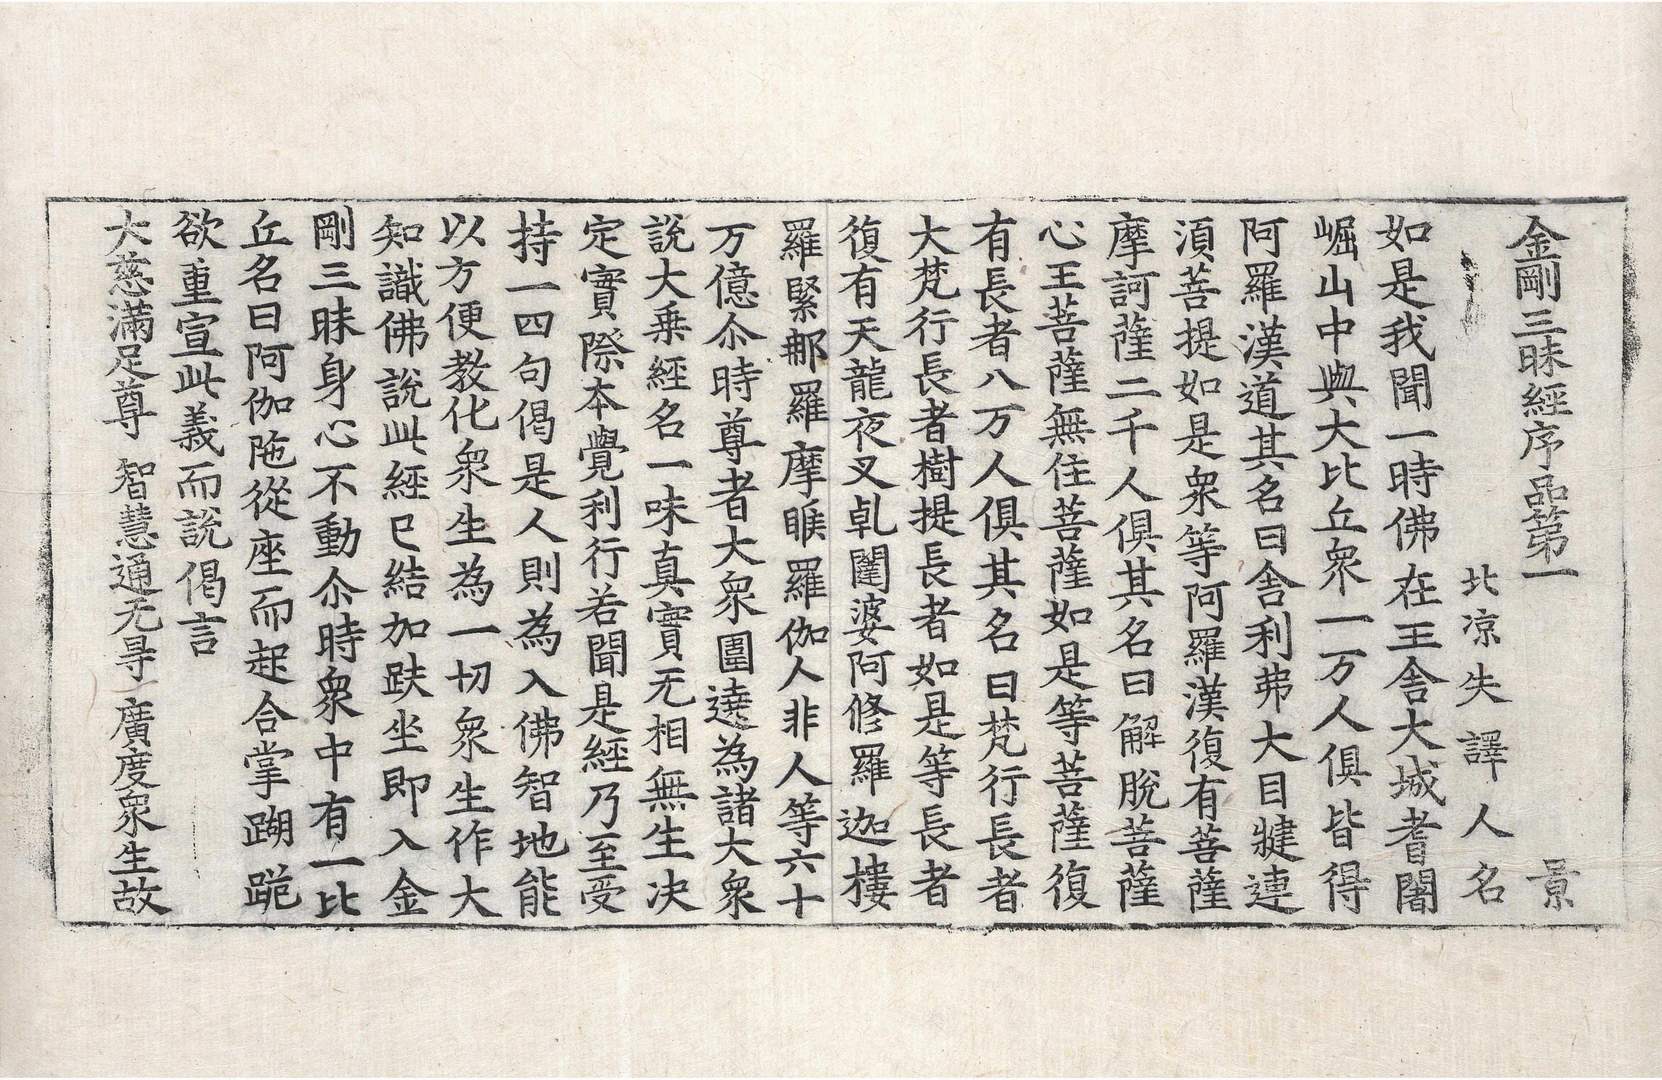 金剛三昧經序品第一 景
北涼失譯人名
如是我聞一時佛在王舎大城耆闍
崛山中與大比丘衆一万人俱皆得
阿羅漢道其名曰舎利弗大目犍連
湏菩提如是衆等阿羅漢復有菩薩
摩訶薩二千人俱其名曰解脫菩薩
心王菩薩無住菩薩如是等菩薩復
有長者八万人俱其名曰梵行長者
大梵行長者樹提長者如是等長者
復有天龍夜叉乹闥婆阿修羅迦樓
羅緊那羅摩睺羅伽人非人等六十
万億尒時尊者大衆圍遶為諸大衆
說大乗經名一味真實无相無生决
定實際本覺利行若聞是經乃至受
持一四句偈是人則為入佛智地能
以方便教化衆生為一切衆生作大
知識佛說此經已結加趺坐即入金
剛三昧身心不動尒時衆中有一比
丘名曰阿伽陁從座而起合掌䠒跪
欲重宣此義而說偈言
大慈滿足尊 智慧通无㝵 廣度衆生故